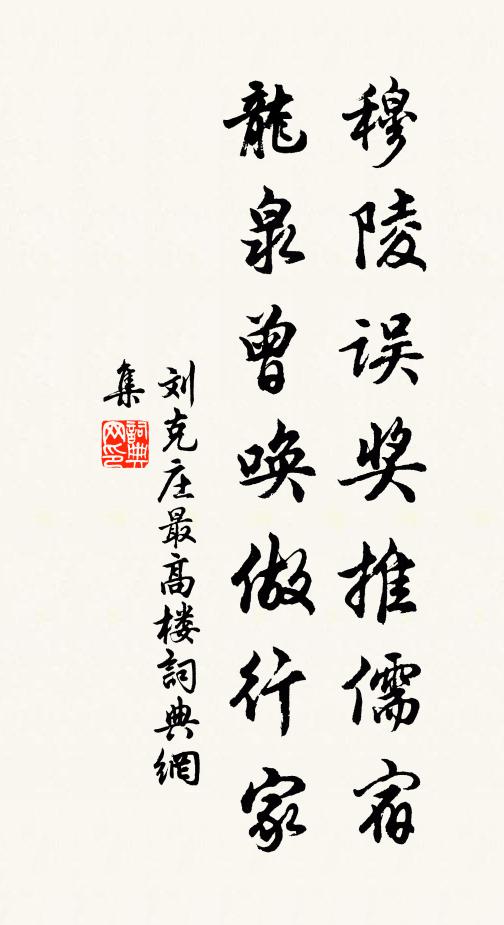 穆陵误奖推儒宿
龍泉曾唤做行家
刘克庄最高楼詞典網
集
詞典网印